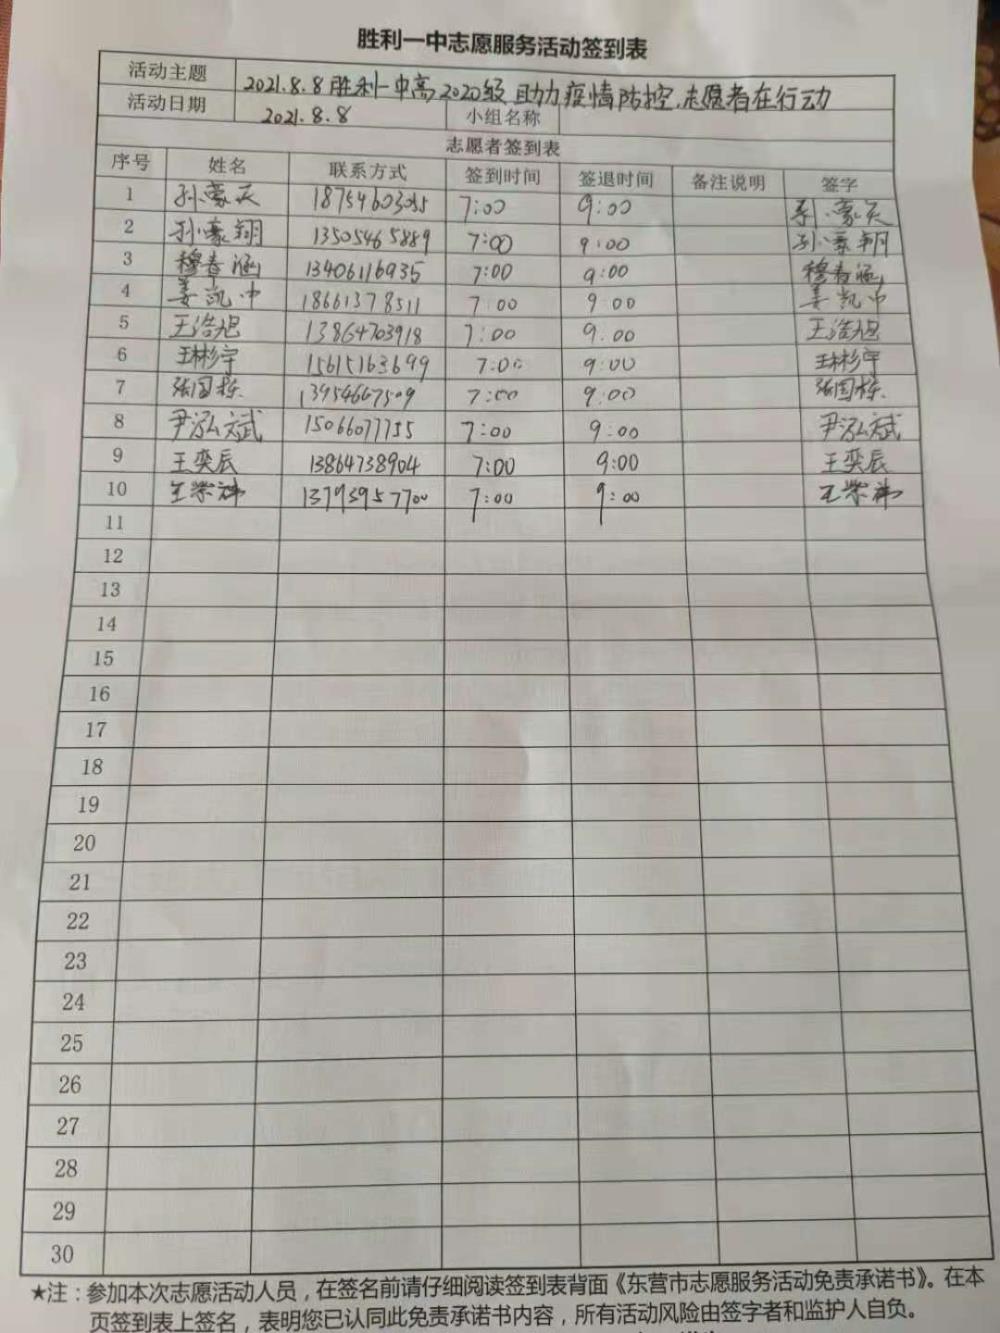 胜利一中志愿服务活动签到表
活动主题 2021.8.8胜利一中高2020级 助力疫情防控.志愿者在行动
活动日期 2021.8.8 小组名称
志愿者签到表
序号 姓名 联系方式 签到时间 签退时间 备注说明 签字
1 孙豪天 7:00 9:00 孙豪天
2 孙豪翔 13505465889 7:00 9:00 孙豪翔
3 穆春涵 13406116935 7:00 9:00 穆春涵
4 姜凯中 18661378511 7:00 9:00 姜凯中
5 王浩旭 13864703918 7:00 9:00 王浩旭
6 王彬宇 15615163699 7:00 9:00 王彬宇
7 张国栋 13954667509 7:00 9:00 张国栋
8 尹泓斌 15066077755 7:00 9:00 尹泓斌
9 王奕辰 13864738904 7:00 9:00 王奕辰
10 13793957700 7:00 9:00
11
12
13
14
15
16
17
18
19
20
21
22
23
24
25
26
27
28
29
30
★注：参加本次志愿活动人员，在签名前请仔细阅读签到表背面《东营市志愿服务活动免责承诺书》。在本
页签到表上签名，表明您已认同此免责承诺书内容，所有活动风险由签字者和监护人自负。